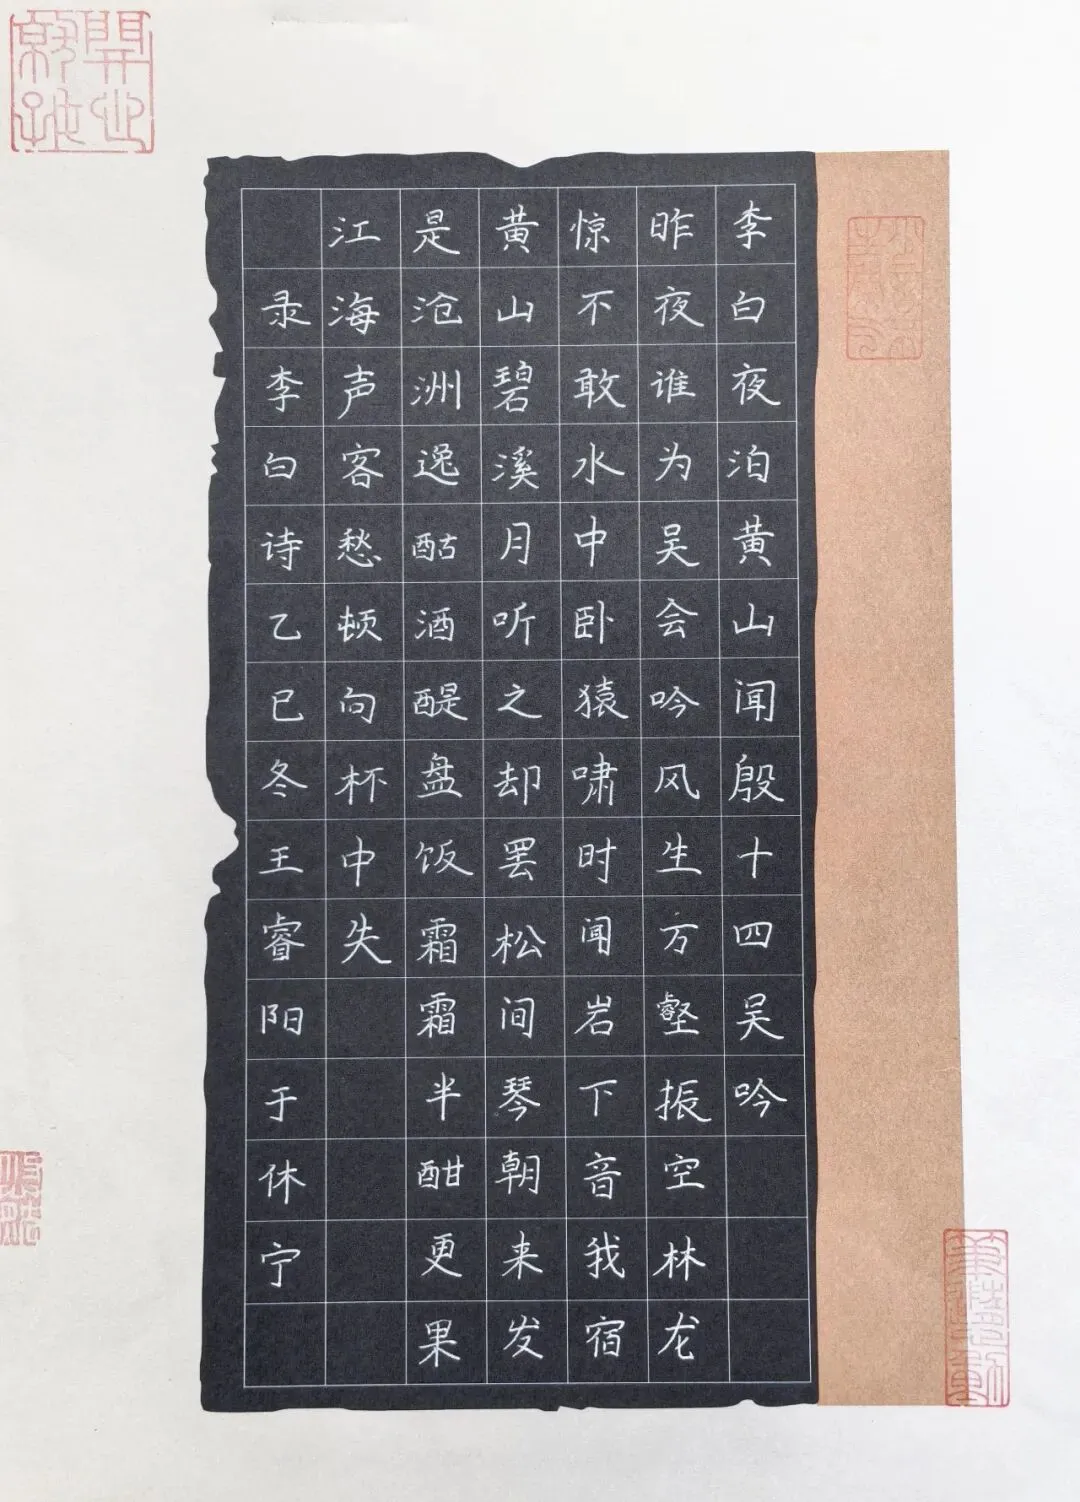 李白夜泊黄山闻殷十四吴吟
昨夜谁为吴会吟风生方壑振空林龙
惊不敢水中卧猿啸时闻岩下音我宿
黄山碧溪月听之却罢松间琴朝来发
是沧洲逸酤酒醍盘饭霜霜半酣更果
江海声客愁顿向杯中失
录李白诗乙巳冬王睿阳于休宁